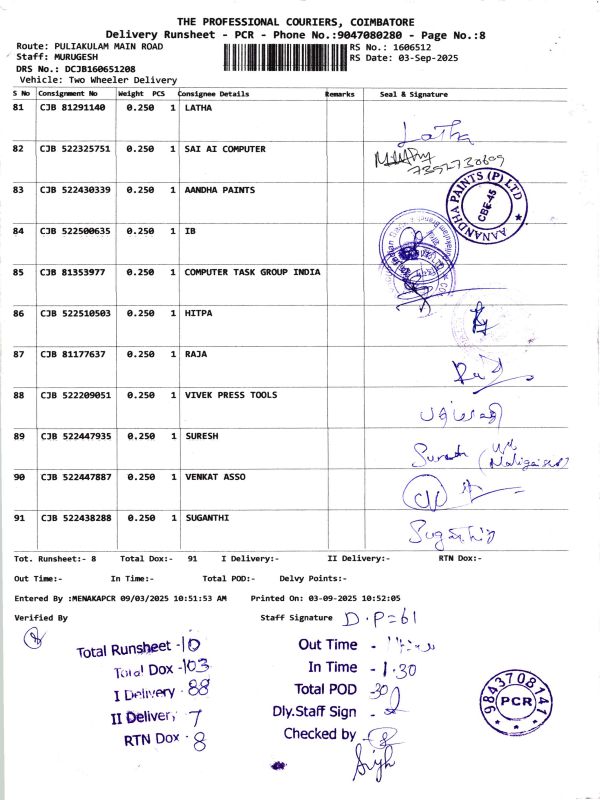 THE PROFESSIONAL COURIERS, COIMBATORE
Delivery Runsheet - PCR - Phone No.:9047080280 - Page No.:8
Route: PULIAKULAM MAIN ROAD RS No.: 1606512
Staff: MURUGESH RS Date: 03-Sep-2025
DRS No.: DCJB160651208
Vehicle: Two Wheeler Delivery
S No Consignment No Weight PCS Consignee Details Remarks Seal & Signature
81 CJB 81291140 0.250 1 LATHA
Latha
82 CJB 522325751 0.250 1 SAI AI COMPUTER
83 CJB 522430339 0.250 1 AANDHA PAINTS
AANANDHA PAINTS (P) LTD
CBE-45
84 CJB 522500635 0.250 1 IB
85 CJB 81353977 0.250 1 COMPUTER TASK GROUP INDIA
86 CJB 522510503 0.250 1 HITPA
87 CJB 81177637 0.250 1 RAJA
88 CJB 522209051 0.250 1 VIVEK PRESS TOOLS
89 CJB 522447935 0.250 1 SURESH
Suresh
90 CJB 522447887 0.250 1 VENKAT ASSO
91 CJB 522438288 0.250 1 SUGANTHI
Tot. Runsheet:- 8 Total Dox:- 91 I Delivery:- II Delivery:- RTN Dox:-
Out Time:- In Time:- Total POD:- Delvy Points:-
Entered By :MENAKAPCR 09/03/2025 10:51:53 AM Printed On: 03-09-2025 10:52:05
Verified By Staff Signature D.P=61
Total Runsheet -10
Total Dox -103
I Delivery - 88
II Delivery 7
RTN Dox - 8
Out Time -
In Time - 1.30
Total POD -30
Dly.Staff Sign -
Checked by -
9843708141
PCR